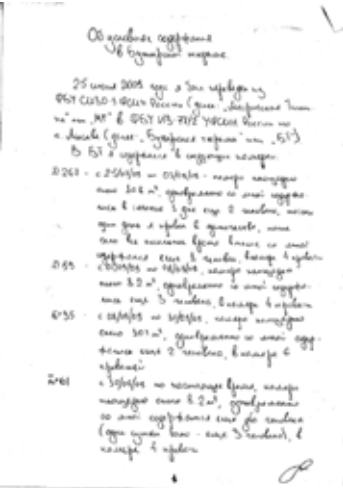 Об условиях содержания
в Бутырской тюрьме.
25 июля 2009 года я был переведен из
ФБУ СИЗО-1 ФСИН России (далее "Матросская Тиши-
на" или "МТ") в ФБУ ИЗ-77/2 УФСИН России по
г. Москве (далее "Бутырская тюрьма" или "БТ").
В БТ я содержался в следующих камерах:
267 - с 25/07/09 по камера площадью
около 10.8 м², одновременно со мной содержа-
лось в течение 3 дней еще 2 человека, после
один день я провел в одиночестве, потом
все остальное время вместе со мной
содержалось еще 3 человека, в камере 4 кровати
59 - камера площадью
около 8.2 м², одновременно со мной содержа-
лось еще 3 человека, в камере 4 кровати
35 - с камера площадью
около 10.1 м², одновременно со мной содер-
жалось еще 2 человека, в камере 6
кроватей
61 с по настоящее время, камера
площадью около 8.2 м², одновременно
со мной содержатся еще два человека
(один сутки было - еще 3 человека), в
камере 4 кровати